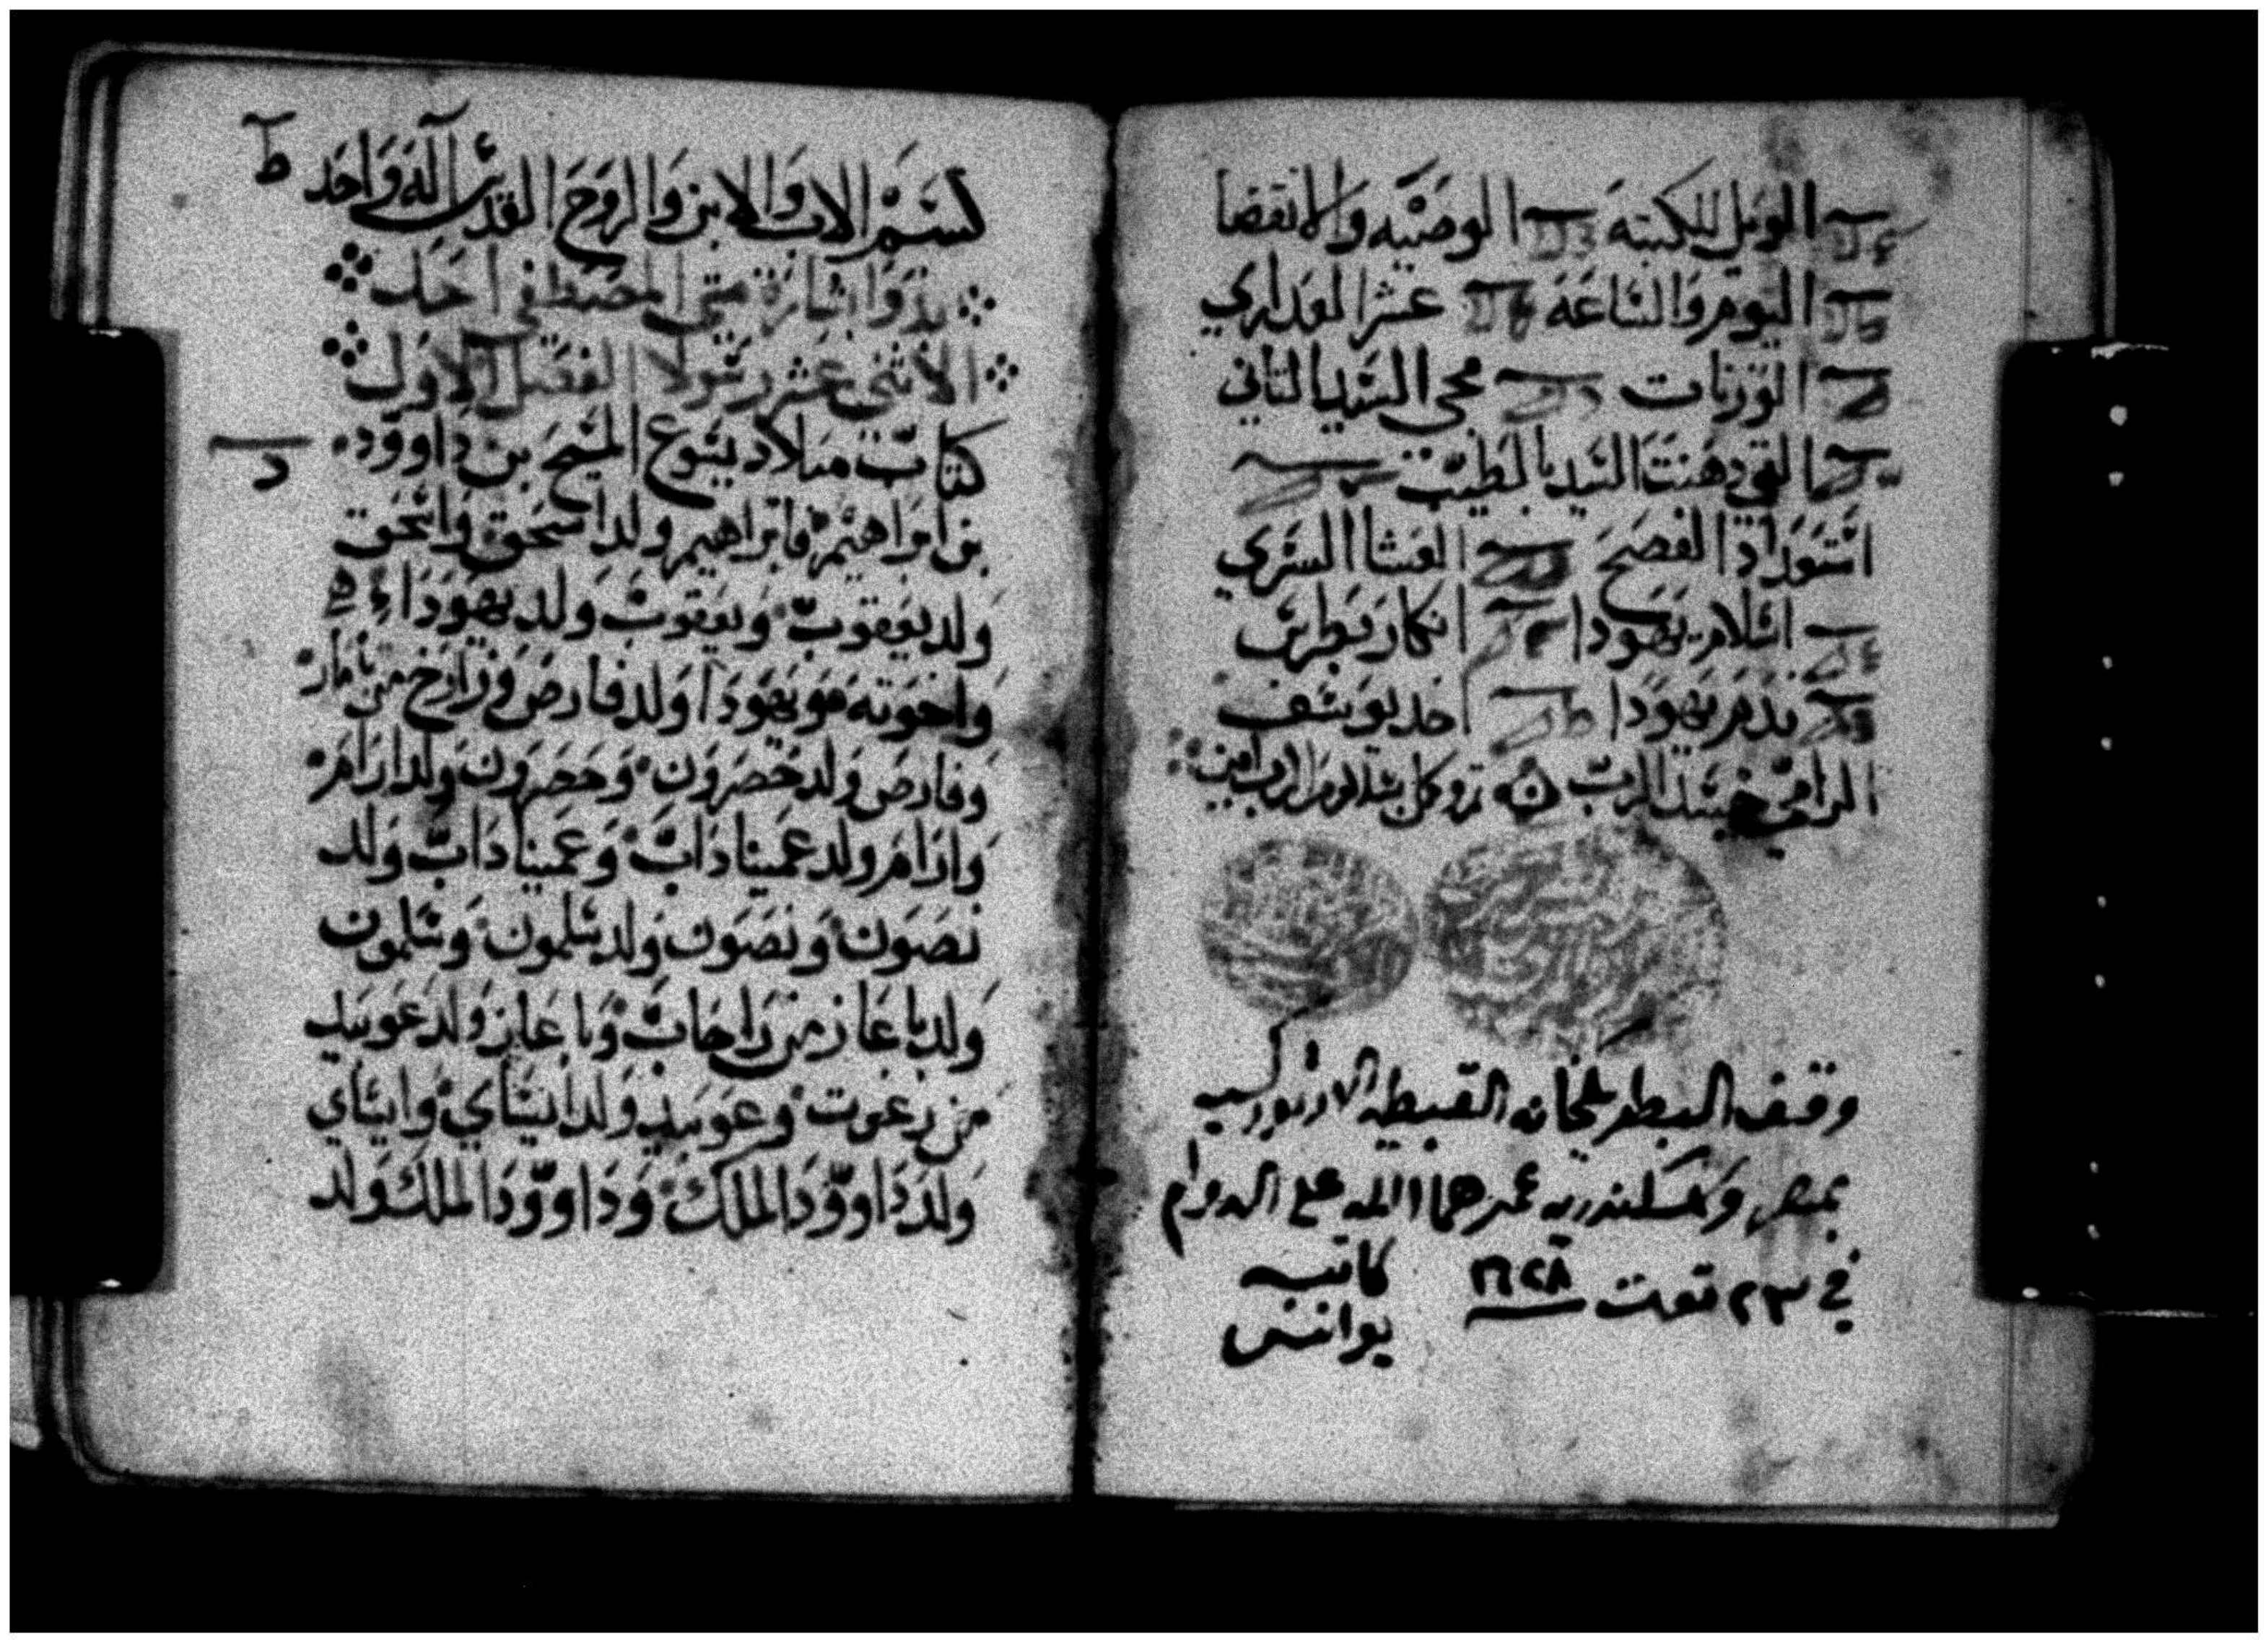 الويل للكتبه الوصيه والانقضا
اليوم والساعة عشر العداري
الوزنات مجى السيد التانى
التى دهنت السيد بالطيب
استعداد الفصح العشا السري
اسلام يهودا انكار بطرس
ندم يهودا اخد يوسف
الرامى جسد الرب بسلام الرب امين
وقف البطريكخانه القبطيه الارتودكسيه
بمصر وسكندريه عمرهما الله على الدوام
في ٢٣ توت ١٦٢٨ كاتبه
يوانس
بسم الاب والابن والروح القدس اله واحد
بدو بشارة متى المصطفى احد
الاثنى عشر رسولا الفصل الاول
كتاب ميلاد يسوع المسيح بن داوود
بن ابراهيم فابراهيم ولد اسحق واسحق
ولد يعقوب ويعقوب ولد يهودا
واخوته ويهودا ولد فارص وزارح من تامار
وفارص ولد حصرون وحصرون ولد ارام
وارام ولد عميناداب وعميناداب ولد
نصون ونصون ولد سلمون وسلمون
ولد باعاز من راحاب وباعاز ولد عوبيد
من رعوت وعوبيد ولد ايساي وايساي
ولد داوود الملك وداوود الملك ولد